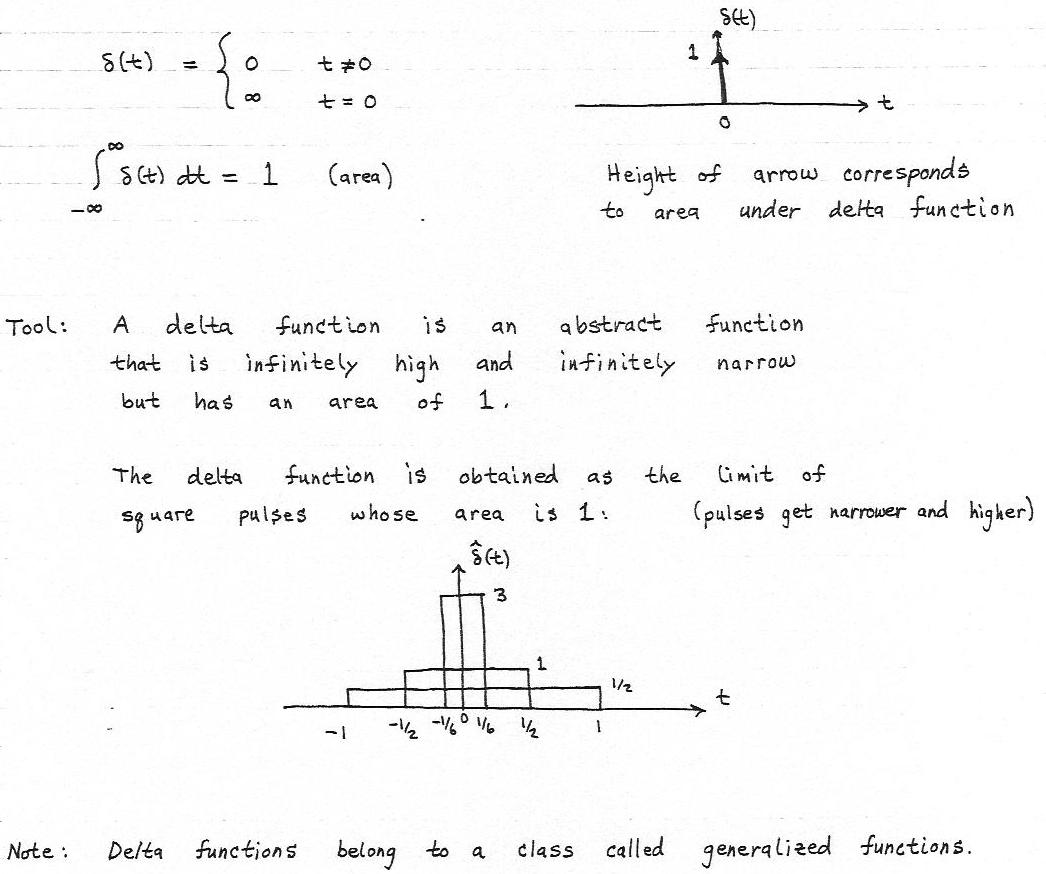 δ(t) = { 0 t ≠ 0
∞ t = 0
∫_{-∞}^{∞} δ(t) dt = 1 (area)
δ(t)
1
t
0
Height of arrow corresponds
to area under delta function
Tool: A delta function is an abstract function
that is infinitely high and infinitely narrow
but has an area of 1.
The delta function is obtained as the limit of
square pulses whose area is 1: (pulses get narrower and higher)
δ̂(t)
3
1
1/2
t
-1 -1/2 -1/6 0 1/6 1/2 1
Note: Delta functions belong to a class called generalized functions.